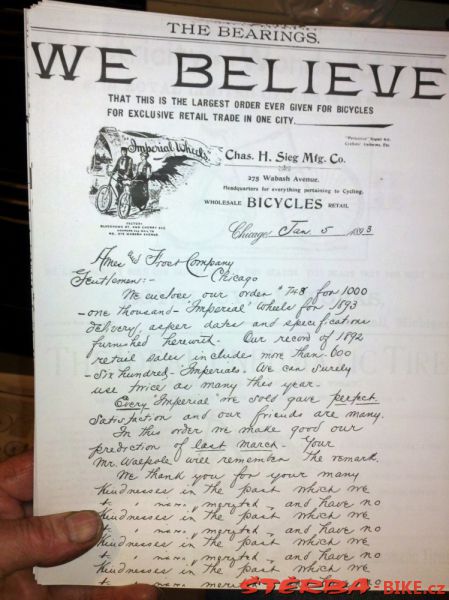 THE BEARINGS.
WE BELIEVE
THAT THIS IS THE LARGEST ORDER EVER GIVEN FOR BICYCLES
FOR EXCLUSIVE RETAIL TRADE IN ONE CITY.
Imperial Wheels
Chas. H. Sieg Mfg. Co.
275 Wabash Avenue.
Headquarters for everything pertaining to Cycling.
WHOLESALE BICYCLES RETAIL
FACTORY
Chicago, Jan 5 1893
Ames & Frost Company
Chicago
Gentlemen:-
We enclose our order # 748 for 1000
-one thousand- "Imperial" Wheels for 1893
delivery, as per dates and specifications
furnished herewith. Our record of 1892
retail sales include more than 600
-Six hundred- Imperials. We can surely
use twice as many this year.
Every "Imperial" we sold gave perfect
satisfaction and our friends are many.
In this order we make good our
prediction of last march. Your
Mr. Walpole will remember the remark.
We thank you for your many
kindnesses in the past which we
merited, and have no
kindnesses in the past which we
merited, and have no
kindnesses in the past which we
merited, and have no
kindnesses in the past which we
ŠTĚRBA-BIKE.cz